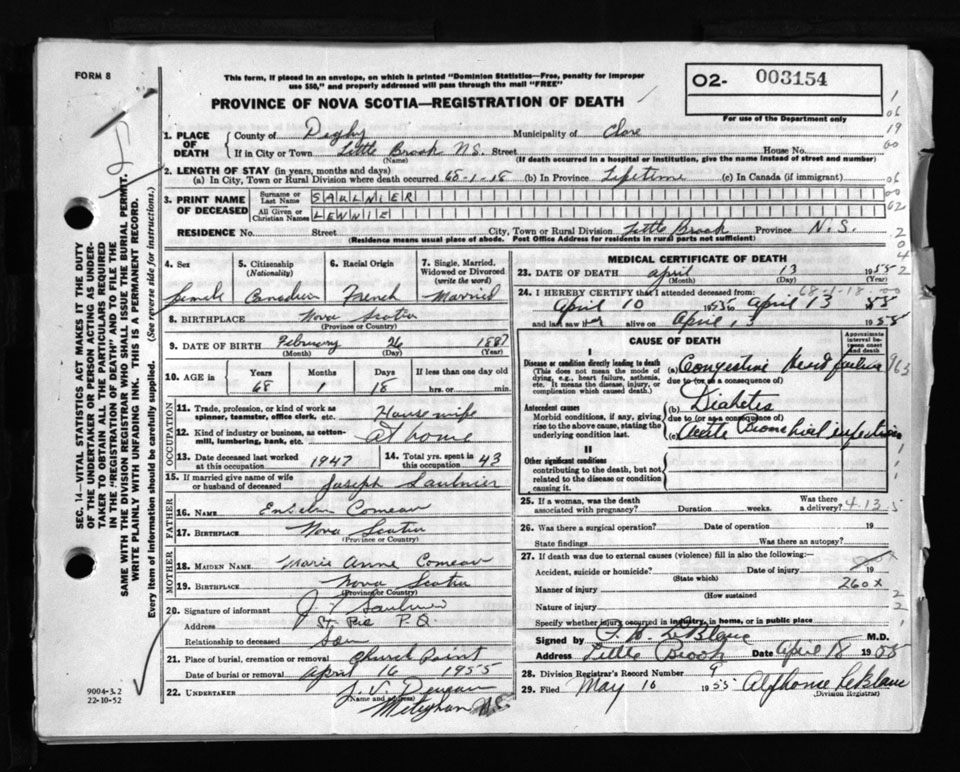 FORM 8
This form, if placed in an envelope, on which is printed "Dominion Statistics—Free, penalty for improper
use $50," and properly addressed will pass through the mail "FREE"
O2- 003154
For use of the Department only
PROVINCE OF NOVA SCOTIA—REGISTRATION OF DEATH
1. PLACE OF DEATH County of Digby Municipality of Clare
If in City or Town Little Brook N.S. Street House No.
(Name) (If death occurred in a hospital or institution, give the name instead of street and number)
2. LENGTH OF STAY (in years, months and days)
(a) In City, Town or Rural Division where death occurred 68-1-18 (b) In Province Lifetime (c) In Canada (if immigrant)
3. PRINT NAME OF DECEASED Surname or Last Name SAULNIER
All Given or Christian Names LENNIE
RESIDENCE No. Street City, Town or Rural Division Little Brook Province N.S.
(Residence means usual place of abode. Post Office Address for residents in rural parts not sufficient)
4. Sex 5. Citizenship (Nationality) 6. Racial Origin 7. Single, Married, Widowed or Divorced (write the word)
Female Canadian French Married
8. BIRTHPLACE Nova Scotia
(Province or Country)
9. DATE OF BIRTH February 26 1887
(Month) (Day) (Year)
10. AGE in Years Months Days If less than one day
68 1 18 hrs. or min.
OCCUPATION
11. Trade, profession, or kind of work as spinner, teamster, office clerk, etc. Housewife
12. Kind of industry or business, as cotton-mill, lumbering, bank, etc. at home
13. Date deceased last worked at this occupation 1947 14. Total yrs. spent in this occupation 43
15. If married give name of wife or husband of deceased Joseph Saulnier
FATHER
16. NAME Comeau
17. BIRTHPLACE Nova Scotia
(Province or Country)
MOTHER
18. MAIDEN NAME Marie Anne Comeau
19. BIRTHPLACE Nova Scotia
(Province or Country)
20. Signature of informant Saulnier
Address St. Pie P.Q.
Relationship to deceased Son
21. Place of burial, cremation or removal Church Point
Date of burial or removal April 16 1955
22. UNDERTAKER
(Name and address) Meteghan N.S.
MEDICAL CERTIFICATE OF DEATH
23. DATE OF DEATH April 13 1955
(Month) (Day) (Year)
24. I HEREBY CERTIFY that I attended deceased from:
April 10 1955 April 13 55
and last saw her alive on April 13 1955
CAUSE OF DEATH
Approximate interval between onset and death
I
Disease or condition directly leading to death
(This does not mean the mode of dying, e.g., heart failure, asthenia, etc. It means the disease, injury, or complication which caused death.)
(a) Congestive heart failure
due to (or as a consequence of)
Antecedent causes
Morbid conditions, if any, giving rise to the above cause, stating the underlying condition last.
(b) Diabetes
due to (or as a consequence of)
(c) Acute Bronchial infection
II
Other significant conditions
contributing to the death, but not related to the disease or condition causing it.
25. If a woman, was the death associated with pregnancy? Duration weeks. Was there a delivery? 4-13-5
26. Was there a surgical operation? Date of operation 19
State findings Was there an autopsy?
27. If death was due to external causes (violence) fill in also the following:—
Accident, suicide or homicide? Date of injury 19
(State which)
Manner of injury 260 X
(How sustained)
Nature of injury
Specify whether injury occurred in industry, in home, or in public place
Signed by LeBlanc M.D.
Address Little Brook Date April 18 1955
28. Division Registrar's Record Number 9
29. Filed May 10 1955 Alphonse LeBlanc
(Division Registrar)
SEC. 14—VITAL STATISTICS ACT MAKES IT THE DUTY
OF THE UNDERTAKER OR PERSON ACTING AS UNDER-
TAKER TO OBTAIN ALL THE PARTICULARS REQUIRED
IN THE "REGISTRATION OF DEATH" AND TO FILE THE
SAME WITH THE DIVISION REGISTRAR WHO SHALL ISSUE THE BURIAL PERMIT.
WRITE PLAINLY WITH UNFADING INK. THIS IS A PERMANENT RECORD.
Every item of information should be carefully supplied. (See reverse side for instructions.)
9004-3.2
22-10-52